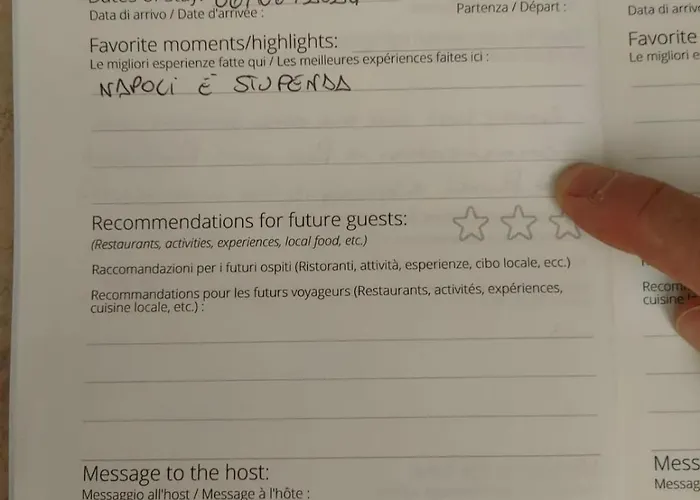 Data di arrivo / Date d'arrivée :
Partenza / Départ :
Favorite moments/highlights:
Le migliori esperienze fatte qui / Les meilleures expériences faites ici :
NAPOLI È STUPENDA
Recommendations for future guests:
(Restaurants, activities, experiences, local food, etc.)
Raccomandazioni per i futuri ospiti (Ristoranti, attività, esperienze, cibo locale, ecc.)
Recommandations pour les futurs voyageurs (Restaurants, activités, expériences,
cuisine locale, etc.) :
Message to the host:
Messaggio all'host / Message à l'hôte :
Data di
Favorite
Le migliori